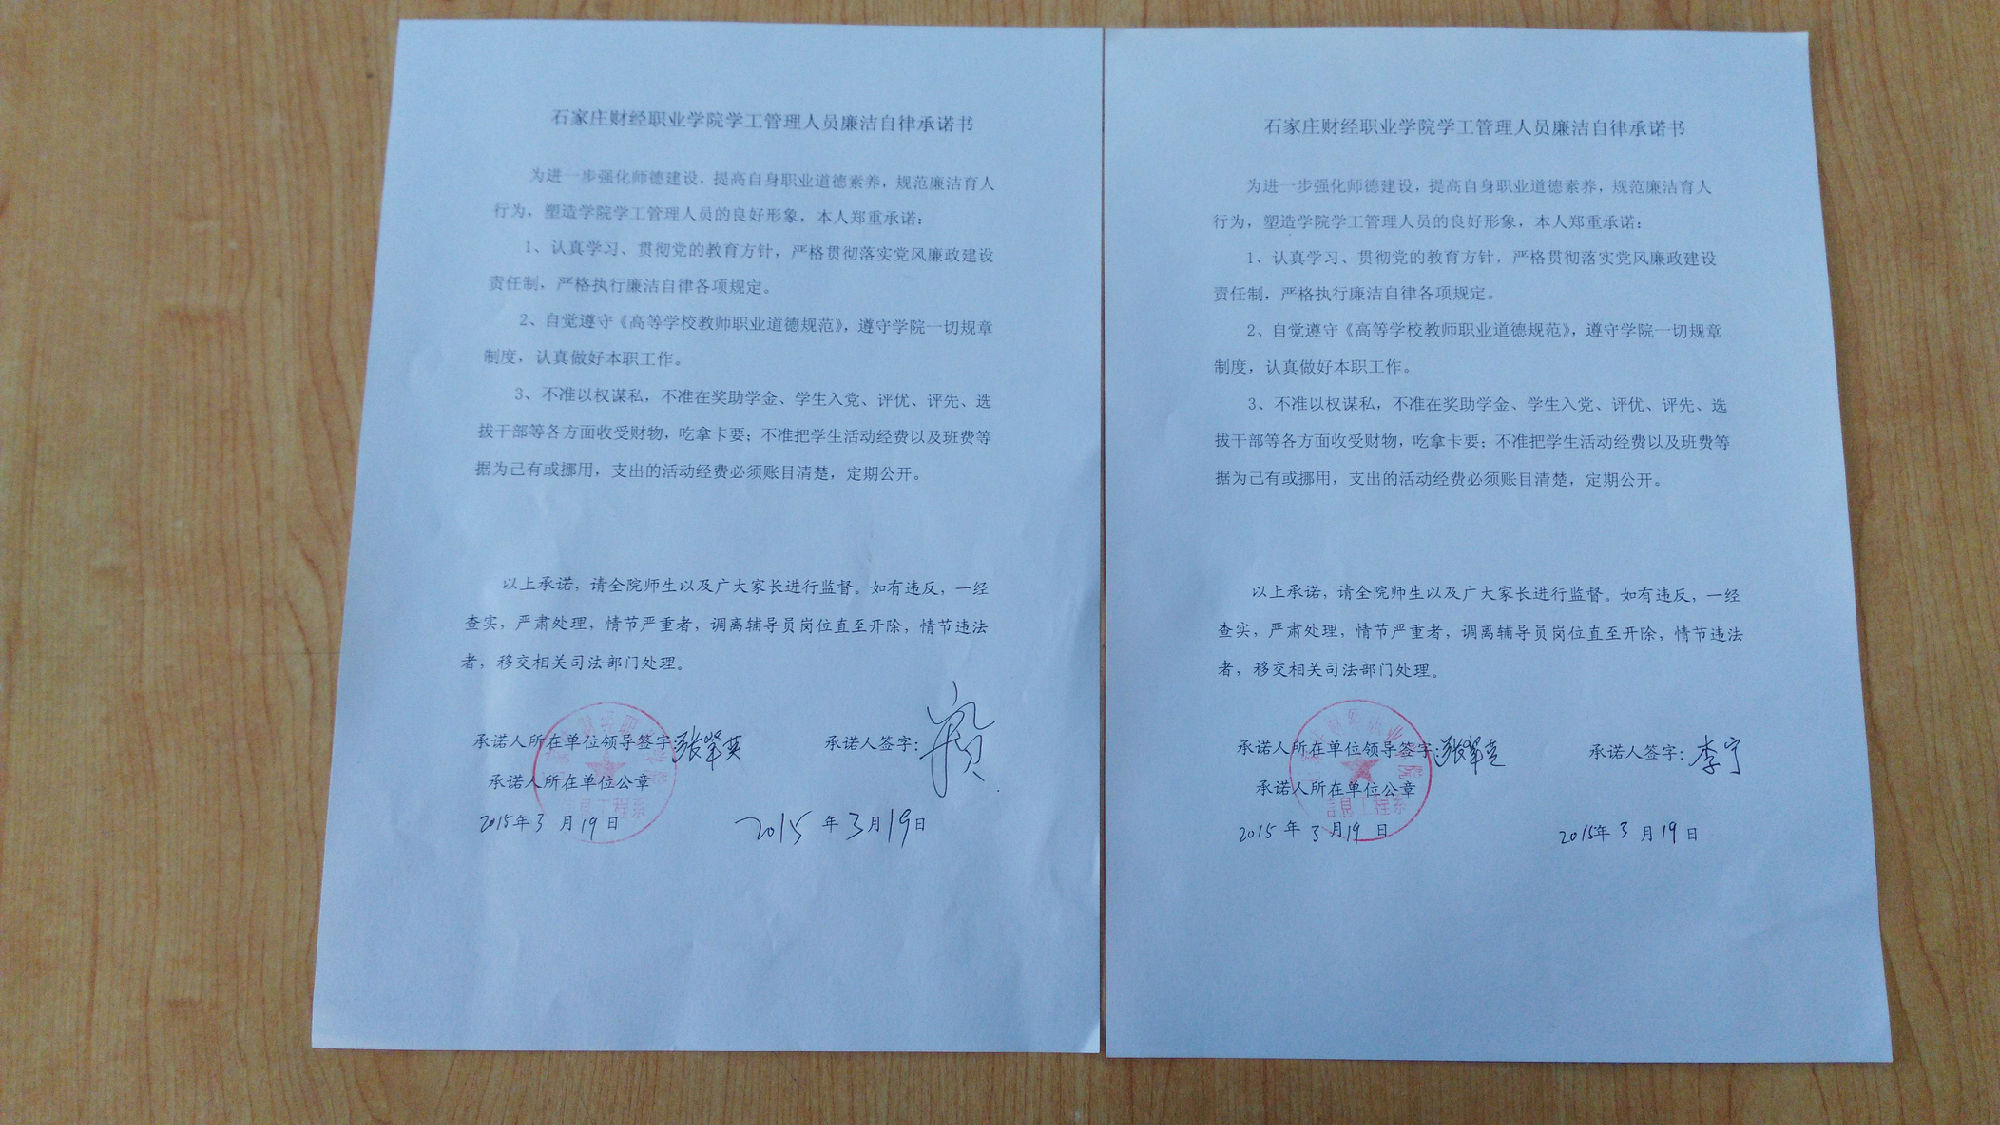 石家庄财经职业学院学工管理人员廉洁自律承诺书
为进一步强化师德建设，提高自身职业道德素养，规范廉洁育人
行为，塑造学院学工管理人员的良好形象，本人郑重承诺：
1、认真学习、贯彻党的教育方针，严格贯彻落实党风廉政建设
责任制，严格执行廉洁自律各项规定。
2、自觉遵守《高等学校教师职业道德规范》，遵守学院一切规章
制度，认真做好本职工作。
3、不准以权谋私，不准在奖助学金、学生入党、评优、评先、选
拔干部等各方面收受财物，吃拿卡要；不准把学生活动经费以及班费等
据为己有或挪用，支出的活动经费必须账目清楚，定期公开。
以上承诺，请全院师生以及广大家长进行监督。如有违反，一经
查实，严肃处理，情节严重者，调离辅导员岗位直至开除，情节违法
者，移交相关司法部门处理。
承诺人所在单位领导签字： 承诺人签字：
承诺人所在单位公章
信息工程系
2015年3月19日 2015年3月19日
石家庄财经职业学院学工管理人员廉洁自律承诺书
为进一步强化师德建设，提高自身职业道德素养，规范廉洁育人
行为，塑造学院学工管理人员的良好形象，本人郑重承诺：
1、认真学习、贯彻党的教育方针，严格贯彻落实党风廉政建设
责任制，严格执行廉洁自律各项规定。
2、自觉遵守《高等学校教师职业道德规范》，遵守学院一切规章
制度，认真做好本职工作。
3、不准以权谋私，不准在奖助学金、学生入党、评优、评先、选
拔干部等各方面收受财物，吃拿卡要；不准把学生活动经费以及班费等
据为己有或挪用，支出的活动经费必须账目清楚，定期公开。
以上承诺，请全院师生以及广大家长进行监督。如有违反，一经
查实，严肃处理，情节严重者，调离辅导员岗位直至开除，情节违法
者，移交相关司法部门处理。
承诺人所在单位领导签字： 承诺人签字：李宁
承诺人所在单位公章
信息工程系
2015年3月19日 2015年3月19日